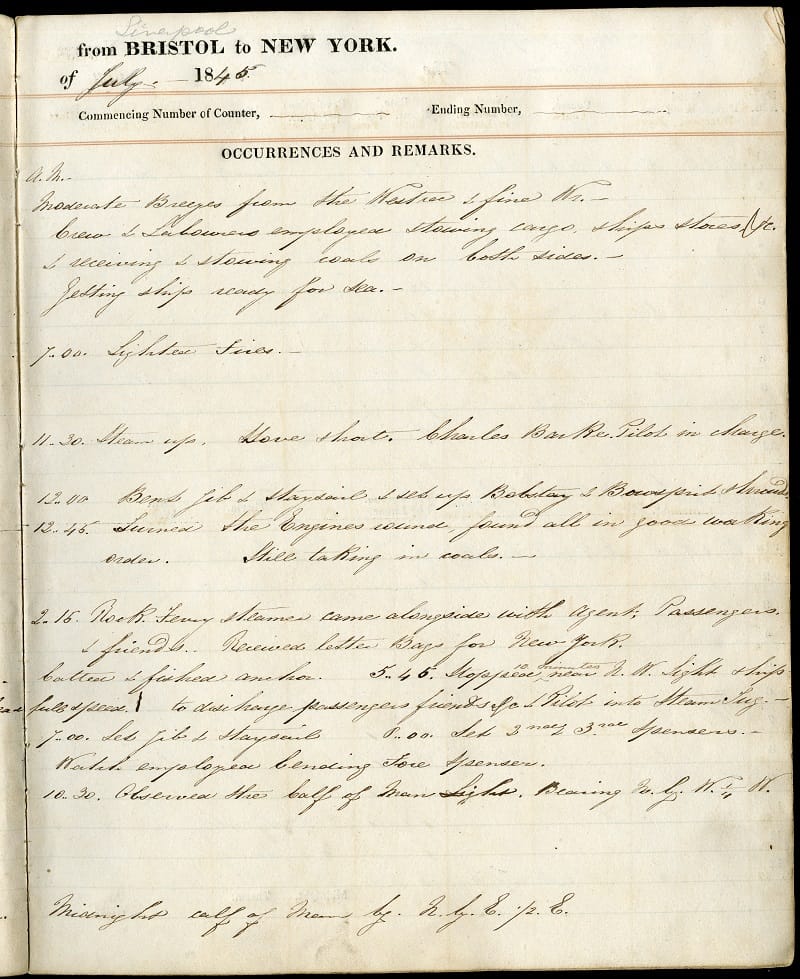 Liverpool
from BRISTOL to NEW YORK.
of July. - 1845.
Commencing Number of Counter, Ending Number,
OCCURRENCES AND REMARKS.
A.M.-
Moderate Breezes from the & fine Wr.-
Crew & Labourers employed stowing cargo, ships stores, &c.
& receiving & stowing coals on both sides.-
Getting ship ready for sea.-
7.00. Lighted Fires.-
11.30. Steam up. Hove short. Charles Pilot in charge.
12.00 Bent Jib & staysail & set up Bobstay & Bowsprit shrouds.
12.45. Turned the Engines round, found all in good working
order. Still taking in coals.-
2.15. Rock Ferry steamer came alongside with Agent, Passengers.
& friends. Received letter Bags for New York.
Catted & fished anchor. 5.45. Stopped 10 minutes near N.W. light ship
full speed. to discharge passengers friends &c & Pilot into Steam Tug.-
7.00. Set jib & staysail 8.00. Set 2nd & 3rd spensers.-
Watch employed bending Fore spenser.
10.30. Observed the Calf of Man Light. Bearing W. 1/4 W.
Midnight calf of Man by. N. by E. 1/2 E.